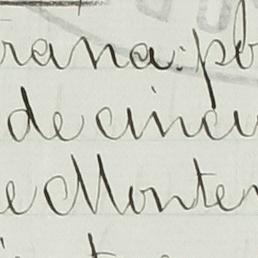 rana: pb
de cincu
e Monter